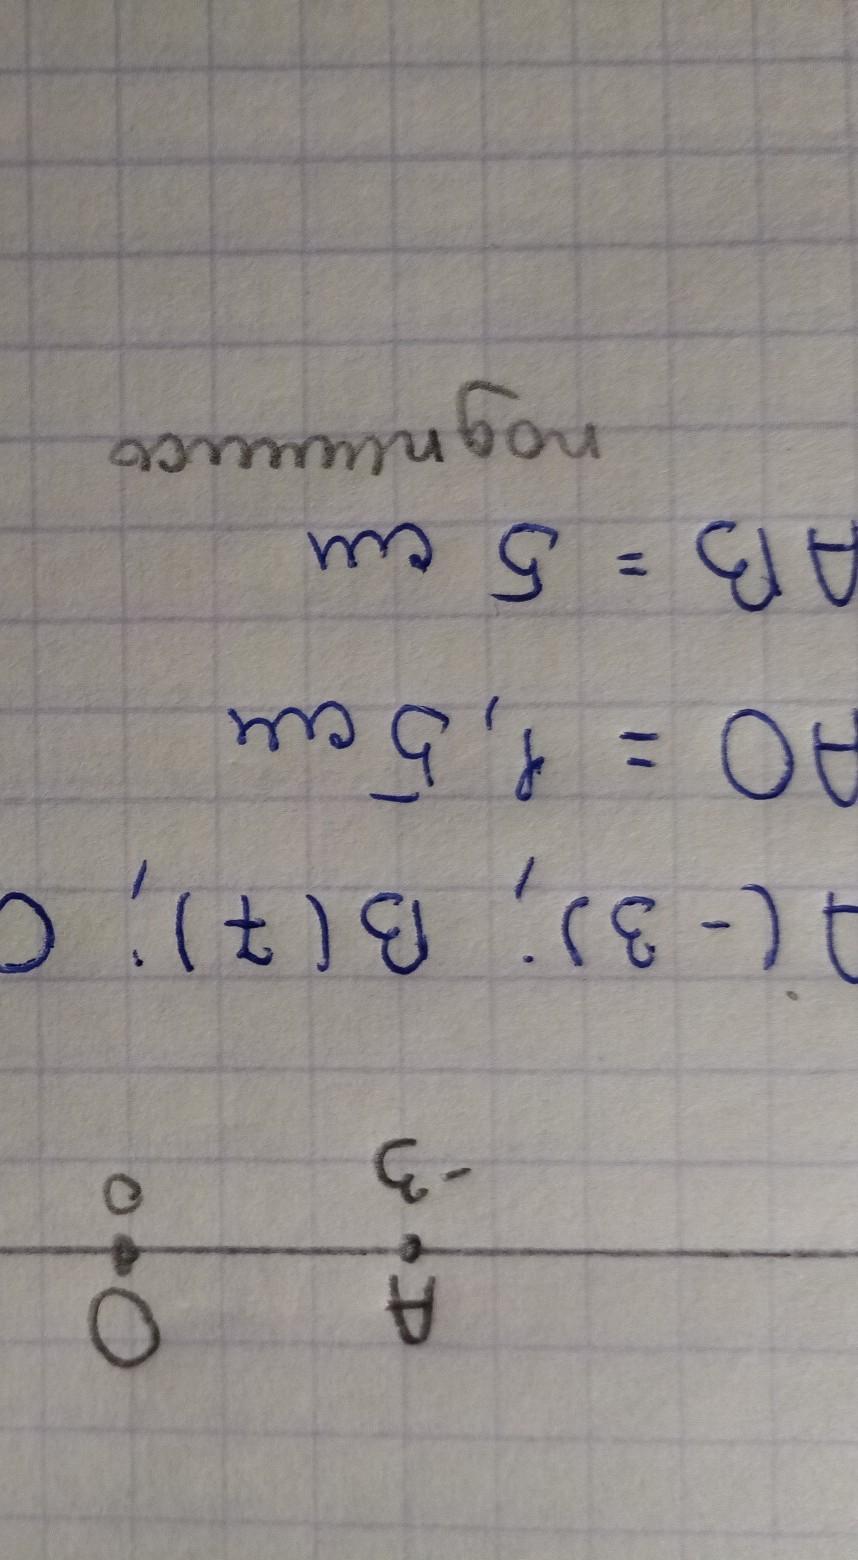 A O
-3 0
A(-3); B(7); C
AO = 1,5 см
AB = 5 см
подпишись